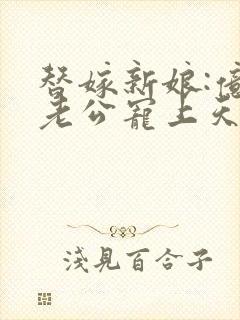 替嫁新娘:億
老公寵上天
浅見百合子